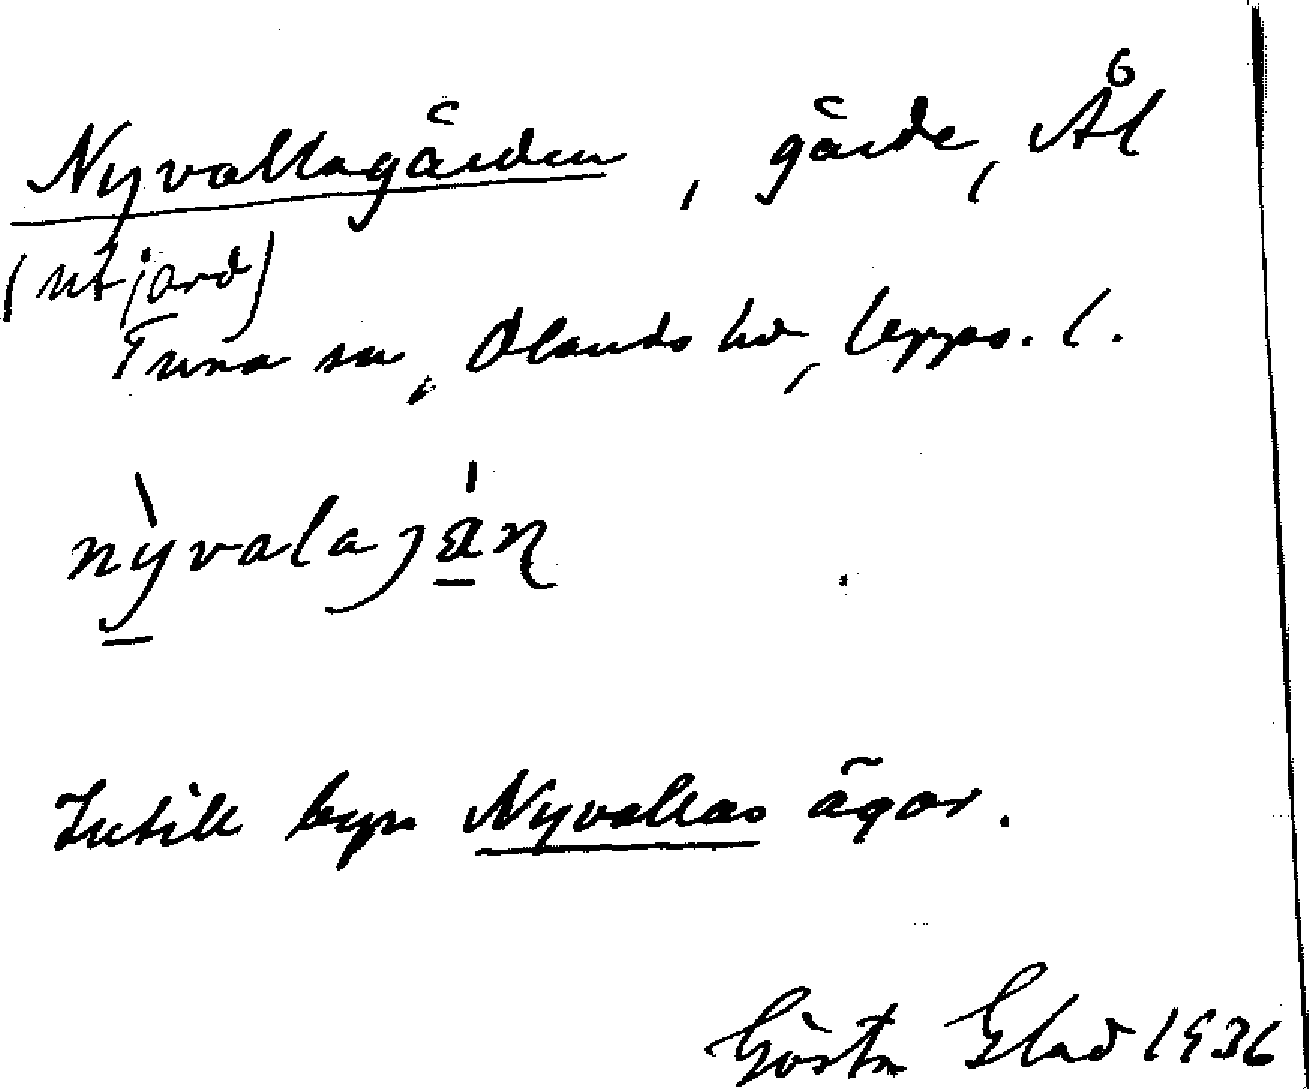 Nyvallagärden, gärde, Ål 6
(utjord)
Tuna sn, Olands hd, Upps. l.
nỳvalajän
Intill byn Nyvallas ägor.
Gösta Elad 1936